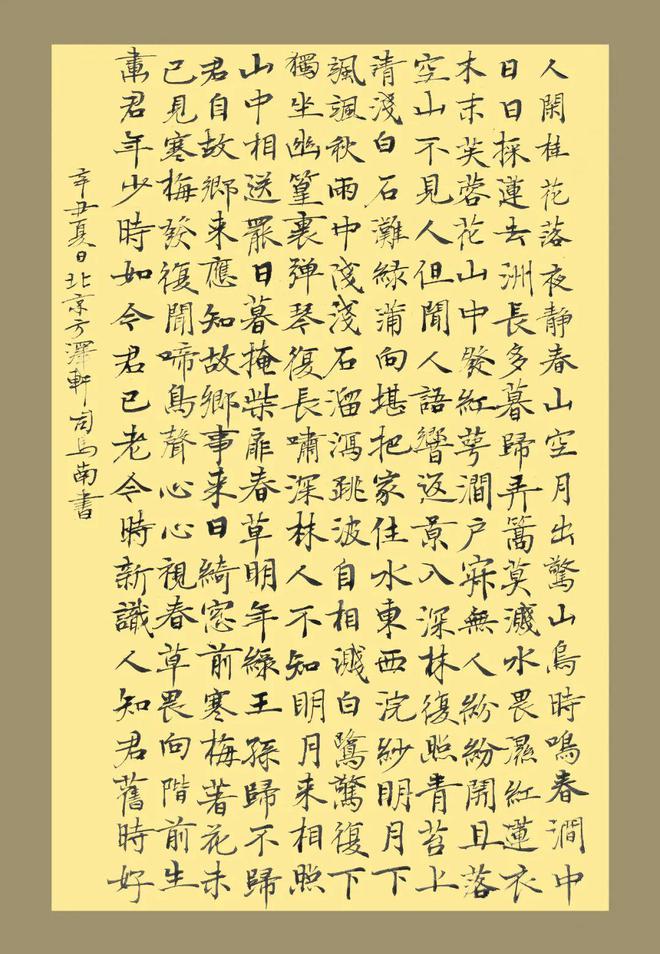 人閑桂花落夜靜春山空月出驚山鳥時鳴春澗中
日日採蓮去洲長多暮歸弄篙莫濺水畏濕紅蓮衣
木末芙蓉花山中發紅萼澗戶寂無人紛紛開且落
空山不見人但聞人語響返景入深林復照青苔上
清淺白石灘綠蒲向堪把家住水東西浣紗明月下
颯颯秋雨中淺淺石溜瀉跳波自相濺白鷺驚復下
獨坐幽篁裏弹琴復長嘯深林人不知明月來相照
山中相送罷日暮掩柴扉春草明年綠王孫歸不歸
君自故鄉来應知故鄉事来日綺窓前寒梅著花未
已見寒梅發復聞啼鳥聲心心視春草畏向階前生
畫君年少時如今君已老今時新識人知君舊時好
辛丑夏日北京方澤軒司馬南書